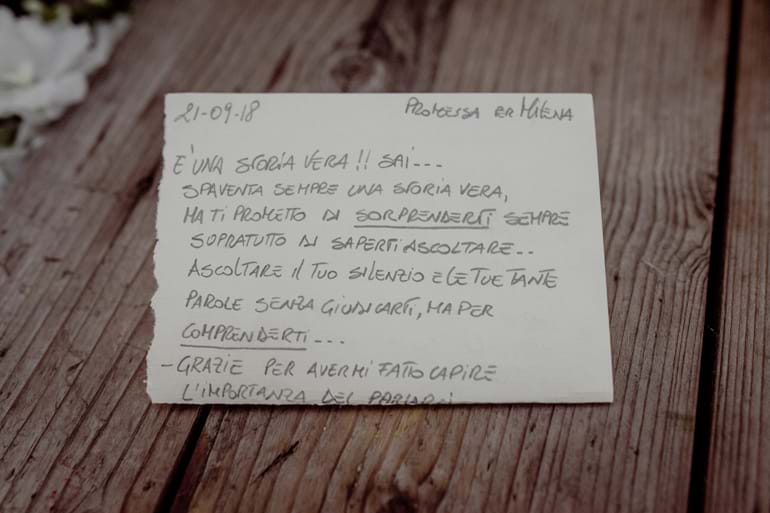 21-09-18 PROMESSA PER MILENA
E' UNA STORIA VERA!! SAI---
SPAVENTA SEMPRE UNA STORIA VERA,
MA TI PROMETTO DI SORPRENDERTI SEMPRE
SOPRATUTTO DI SAPERTI ASCOLTARE...
ASCOLTARE IL TUO SILENZIO E LE TUE TANTE
PAROLE SENZA GIUDICARTI, MA PER
COMPRENDERTI---
-GRAZIE PER AVERMI FATTO CAPIRE
L'IMPORTANZA DEL PARLARSI